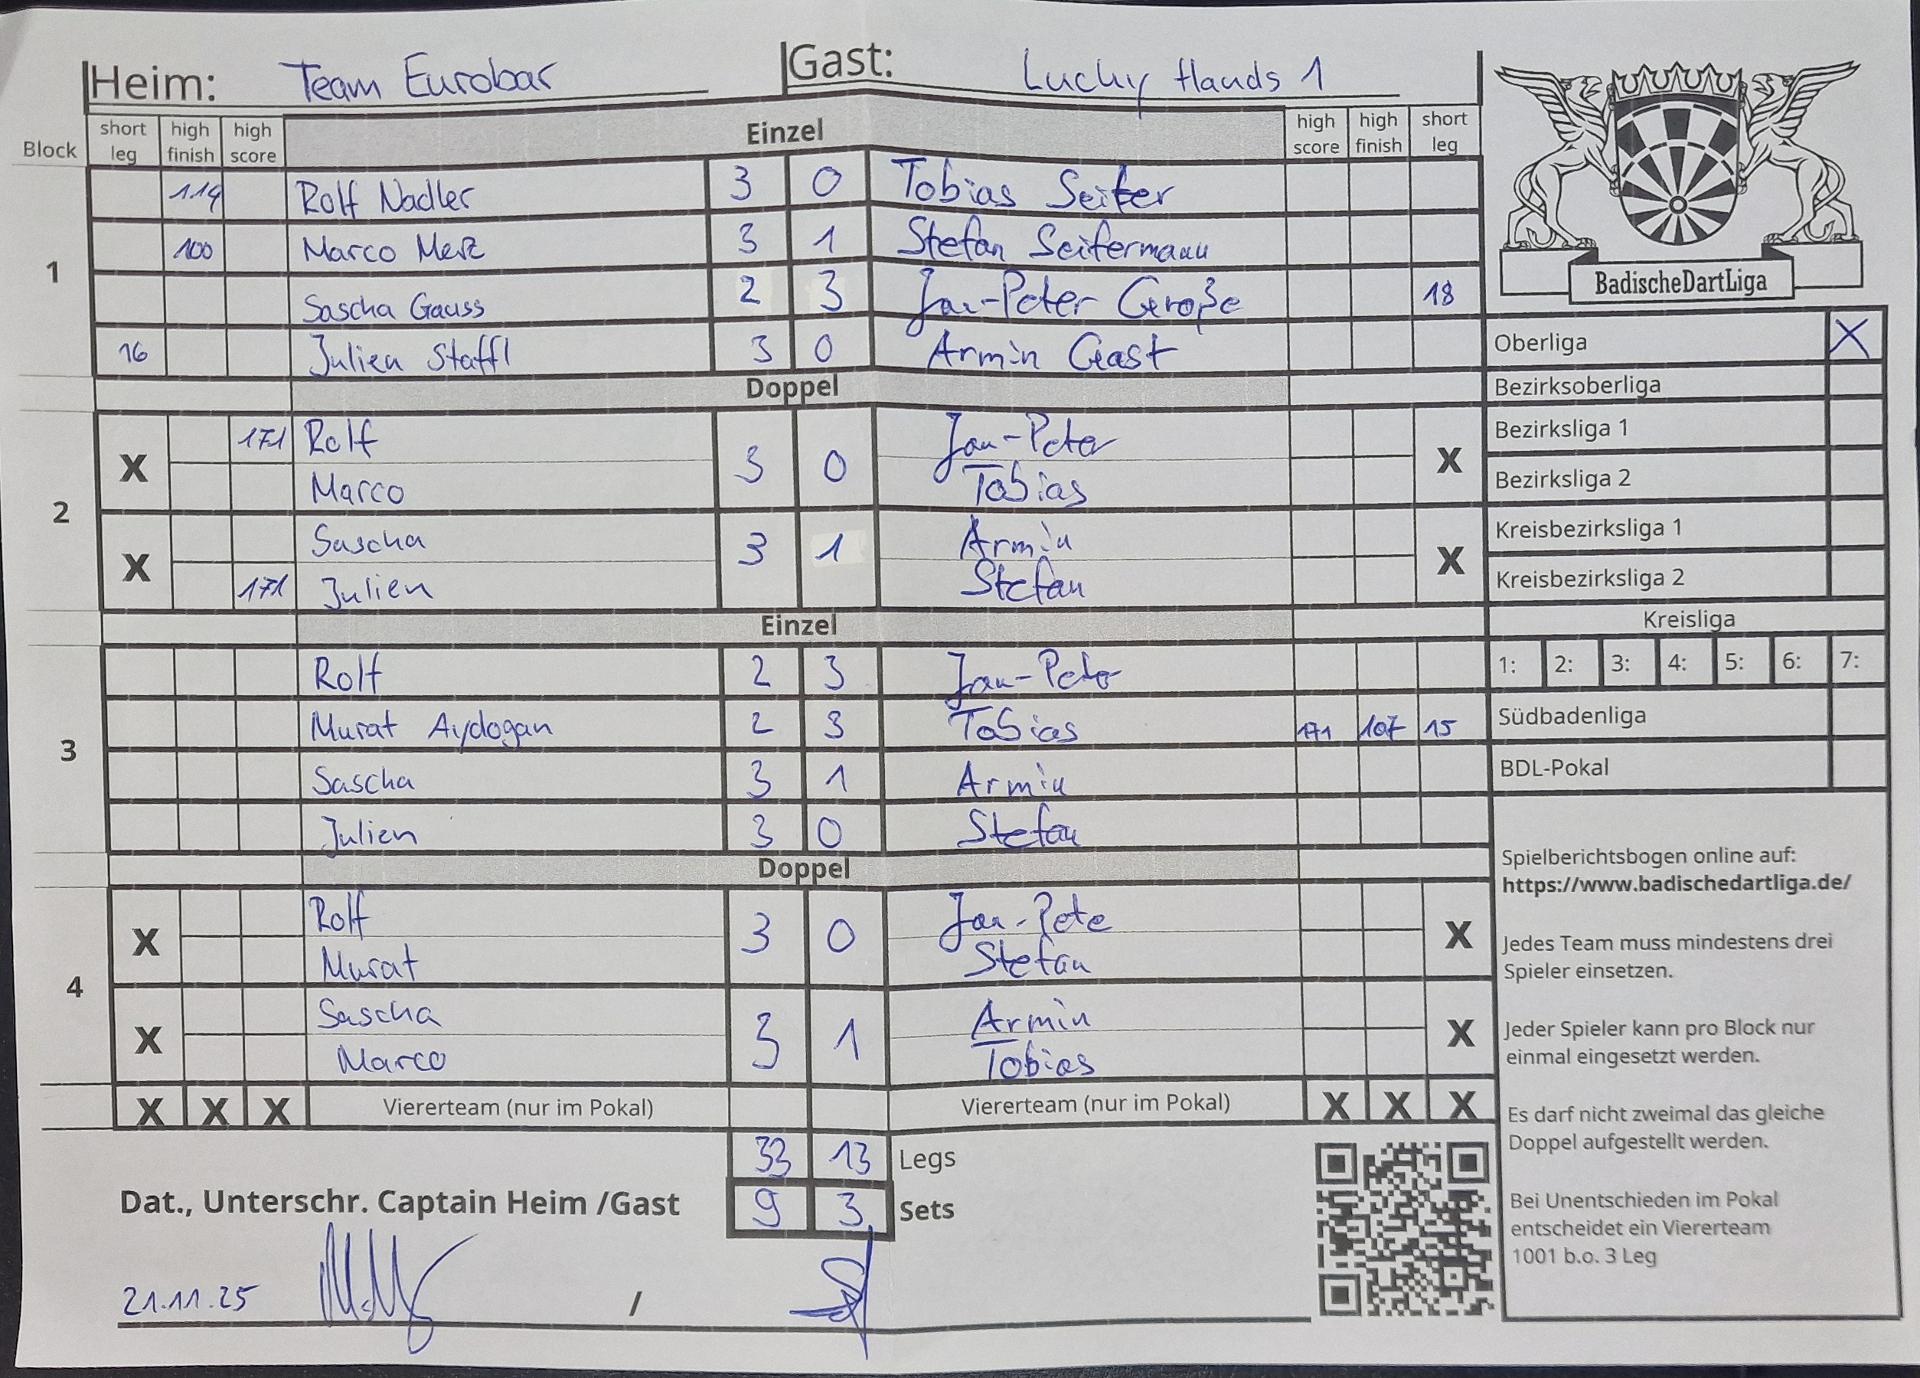 Heim: Team Eurobar Gast: Lucky Hands 1
Block short leg high finish high score Einzel high score high finish short leg
1
114 Rolf Nadler 3 0 Tobias Seiter
100 Marco Merz 3 1 Stefan Seifermann
Sascha Gauss 2 3 Jan-Peter Große 18
16 Julien Staffl 3 0 Armin Gast
Doppel
2
X 171 Rolf 3 0 Jan-Peter X
Marco Tobias
X Sascha 3 1 Armin X
171 Julien Stefan
Einzel
3
Rolf 2 3 Jan-Peter
Murat Aydogan 2 3 Tobias 171 107 15
Sascha 3 1 Armin
Julien 3 0 Stefan
Doppel
4
X Rolf 3 0 Jan-Pete X
Murat Stefan
X Sascha 3 1 Armin X
Marco Tobias
X X X Viererteam (nur im Pokal) Viererteam (nur im Pokal) X X X
33 13 Legs
Dat., Unterschr. Captain Heim /Gast 9 3 Sets
21.11.25 /
BadischeDartLiga
Oberliga X
Bezirksoberliga
Bezirksliga 1
Bezirksliga 2
Kreisbezirksliga 1
Kreisbezirksliga 2
Kreisliga
1: 2: 3: 4: 5: 6: 7:
Südbadenliga
BDL-Pokal
Spielberichtsbogen online auf:
https://www.badischedartliga.de/
Jedes Team muss mindestens drei
Spieler einsetzen.
Jeder Spieler kann pro Block nur
einmal eingesetzt werden.
Es darf nicht zweimal das gleiche
Doppel aufgestellt werden.
Bei Unentschieden im Pokal
entscheidet ein Viererteam
1001 b.o. 3 Leg